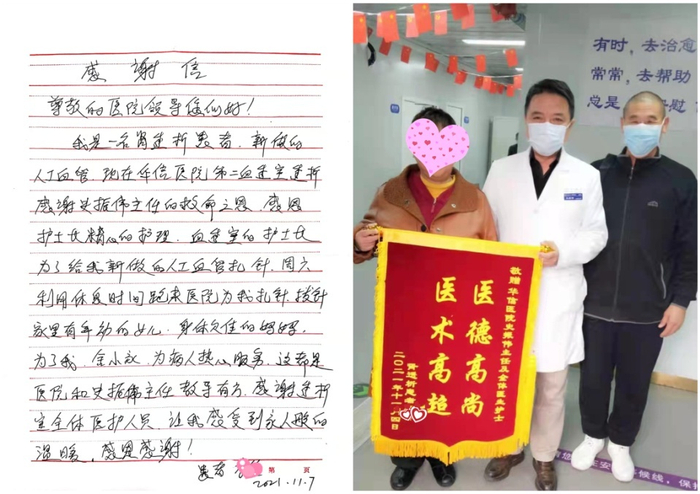 感谢信
尊敬的医院领导您们好！
我是一名肾透析患者，新做的
人工血管，现在华信医院第二血透室透析
感谢史振伟主任的救命之恩，感恩
护士长精心的护理，血透室的护士长
为了给我新做的人工血管扎针，周六
利用休息时间跑来医院为我扎针、拔针
家里有年幼的女儿，身体欠佳的妈妈
为了我，舍小家，为病人热心服务，这都是
医院和史振伟主任教导有方，感谢透析
室全体医护人员，让我感受到家人般的
温暖，感恩感谢！
患者
第 页
2021.11.7
有时，去治愈
常常，去帮助
总是 慰
敬赠 华信医院史振伟主任及全体医生护士
医德高尚
医术高超
肾透析患者
二〇二一年十一月四日